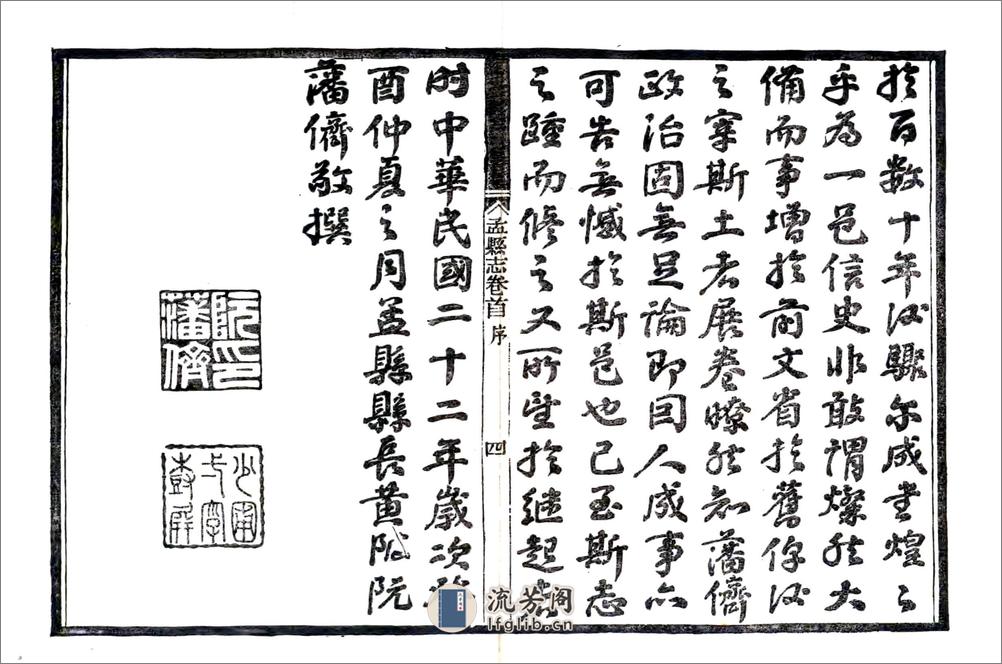 於百数十年後驟尔成書煌之
乎為一邑信史非敢謂燦然大
備而事增於前文省於舊俾後
之宰斯土者展卷瞭然知藩儕
政治固無足論即因人成事亦
可告無憾於斯邑也已至斯志
之踵而修之又所望於継起者
孟縣志卷首 序 四
时中華民國二十二年歲次癸
酉仲夏之月孟縣縣長黄陂阮
藩儕敬撰
阮印藩儕
少甫
流芳阁
lfglib.cn